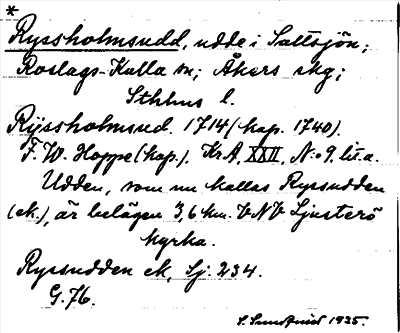 *
Ryssholmsudd, udde i Saltsjön;
Roslags-Kulla sn; Åkers skg;
Sthlms l.
Ryssholmsud. 1714 (kop. 1740).
F. W. Hoppe (kop.), KrA, XXII, N:o 9. lit. a.
Udden, som nu kallas Ryssudden
(ek.), är belägen 3,6 km. VNV Ljusterö
kyrka.
Ryssudden ek, Sj. 234.
G. 76.
S. Sundquist 1935.